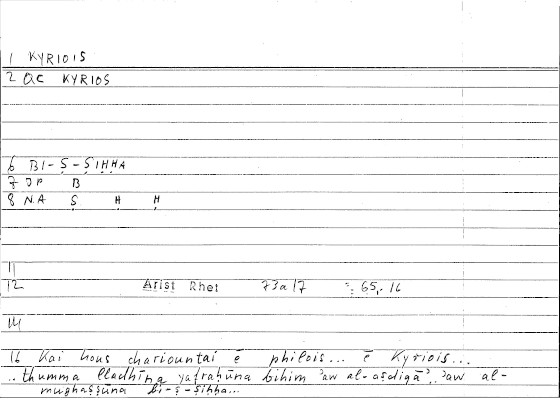 1 KYRIOIS
2 QC KYRIOS
6 BI-Ṣ-ṢIḤḤA
7 JP B
8 NA Ṣ Ḥ Ḥ
11
12 Arist Rhet 73a17 65,16
14
16 Kai hous chariountai ē philois... ē Kyriois...
..thumma lladhīna yafraḥūna bihim 'aw al-aṣdiqā'.. 'aw al-
mughaṣṣūna bi-ṣ-ṣiḥḥa...